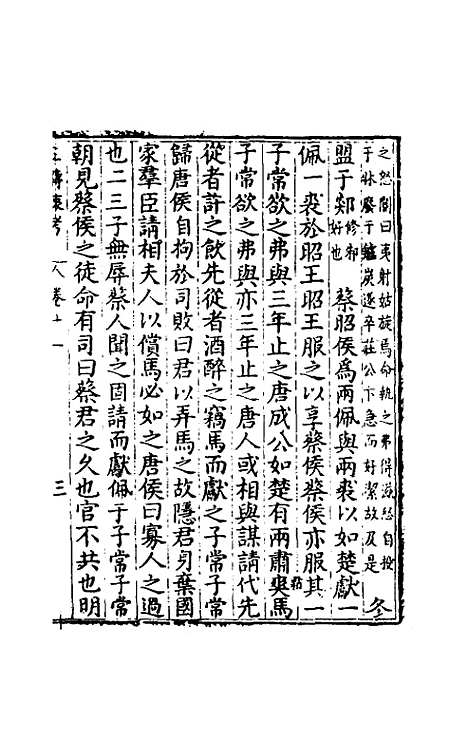 之怒閽曰夷射姑旋焉命執之弗得滋怒自投
于牀廢于鑪炭遂卒莊公卞急而好潔故及是
冬
盟于郯修邾好也　蔡昭侯爲兩佩與兩裘以如楚獻一
佩一裘於昭王昭王服之以享蔡侯蔡侯亦服其一
子常欲之弗與三年止之唐成公如楚有兩肅爽馬
子常欲之弗與亦三年止之唐人或相與謀請代先
從者許之飲先從者酒醉之竊馬而獻之子常子常
歸唐侯自拘於司敗曰君以弄馬之故隱君身棄國
家羣臣請相夫人以償馬必如之唐侯曰寡人之過
也二三子無辱蔡人聞之固請而獻佩于子常子常
朝見蔡侯之徒命有司曰蔡君之久也官不共也明
卷十一
三